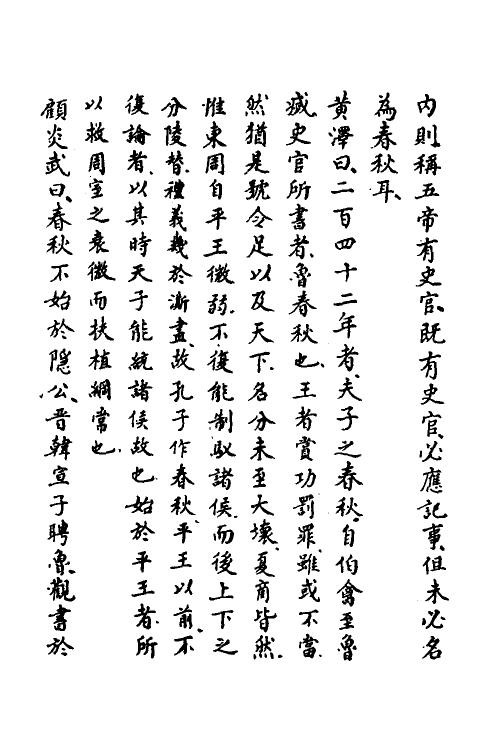 內則稱五帝有史官、既有史官、必應記事、但未必名
為春秋耳、
黃澤曰、二百四十二年者、夫子之春秋、自伯禽至魯
滅史官所書者、魯春秋也、王者賞功罰罪、雖或不當、
然猶是號令足以及天下、名分未至大壞、夏商皆然、
惟東周自平王微弱、不復能制馭諸侯、而後上下之
分陵替、禮義幾於漸盡、故孔子作春秋、平王以前、不
復論者、以其時天子能統諸侯故也、始於平王者、所
以救周室之衰微而扶植綱常也、
顧炎武曰、春秋不始於隱公、晉韓宣子聘魯、觀書於